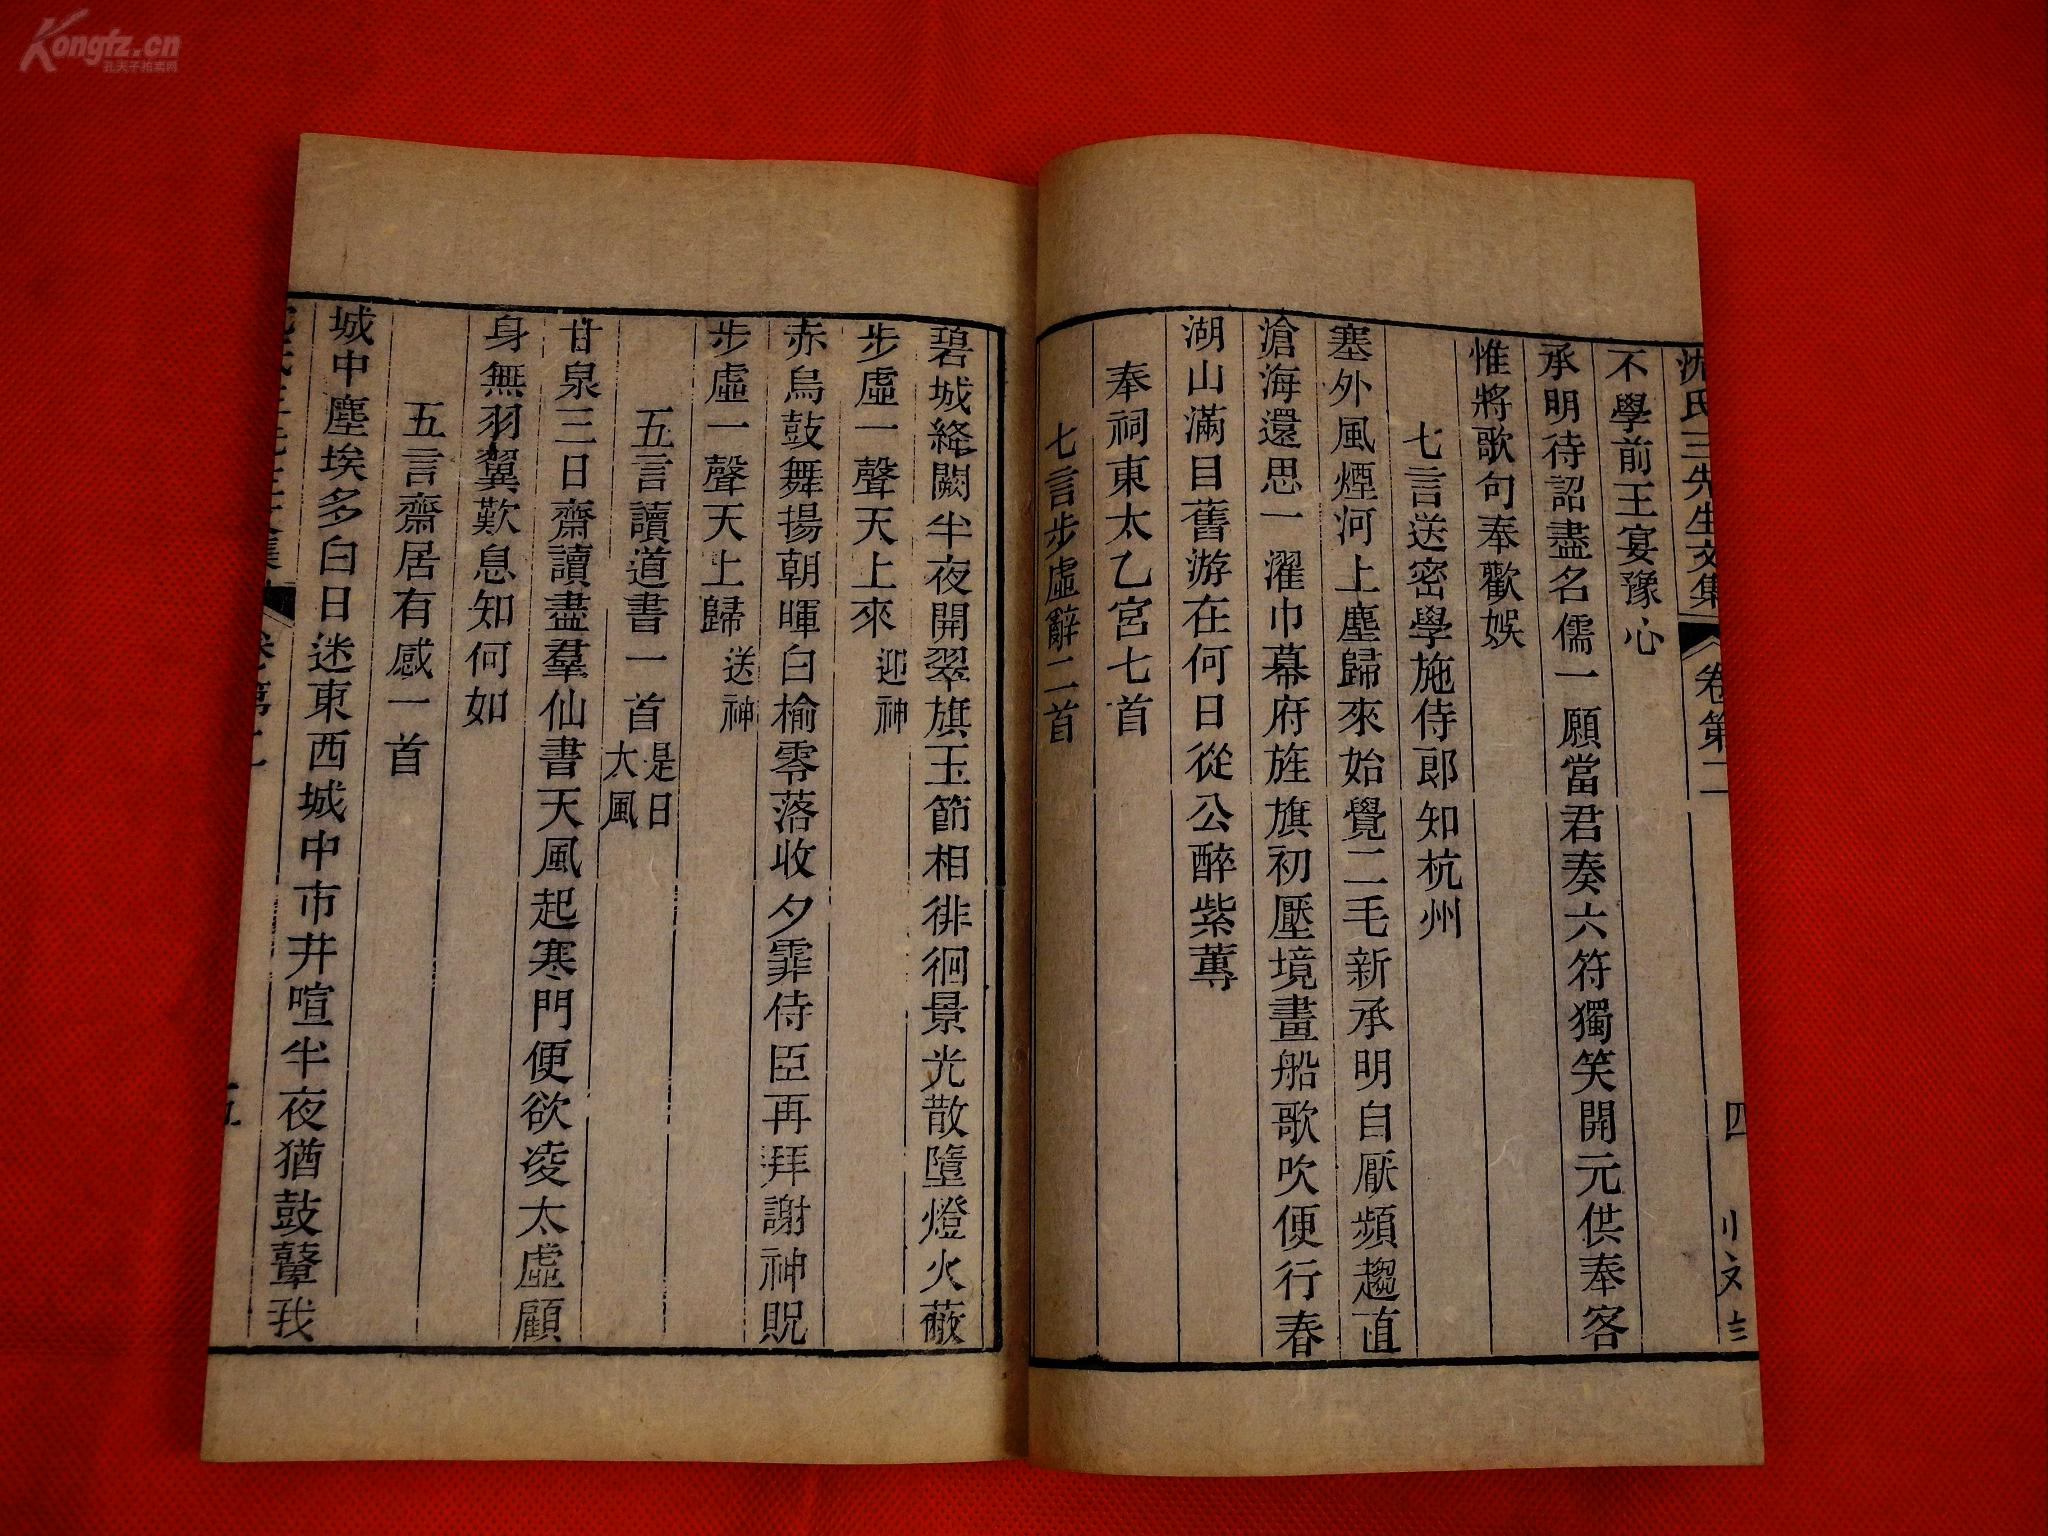 Kongfz.cn
孔夫子拍卖网
沈氏三先生文集 卷第二 四
不學前王宴豫心
承明待詔盡名儒一願當君奏六符獨笑開元供奉客
惟將歌句奉歡娛
七言送密學施侍郎知杭州
塞外風煙河上塵歸來始覺二毛新承明自厭頻趨直
滄海還思一濯巾幕府旌旗初壓境畫船歌吹便行春
湖山滿目舊游在何日從公醉紫蓴
奉祠東太乙宮七首
七言步虛辭二首
碧城絳闕半夜開翠旗玉節相徘徊景光散墮燈火蔽
步虛一聲天上來 迎神
赤烏鼓舞揚朝暉白榆零落收夕霏侍臣再拜謝神貺
步虛一聲天上歸 送神
五言讀道書一首 是日大風
甘泉三日齋讀盡羣仙書天風起寒門便欲凌太虛顧
身無羽翼歎息知何如
五言齋居有感一首
城中塵埃多白日迷東西城中市井喧半夜猶鼓鼙我
卷第二 五